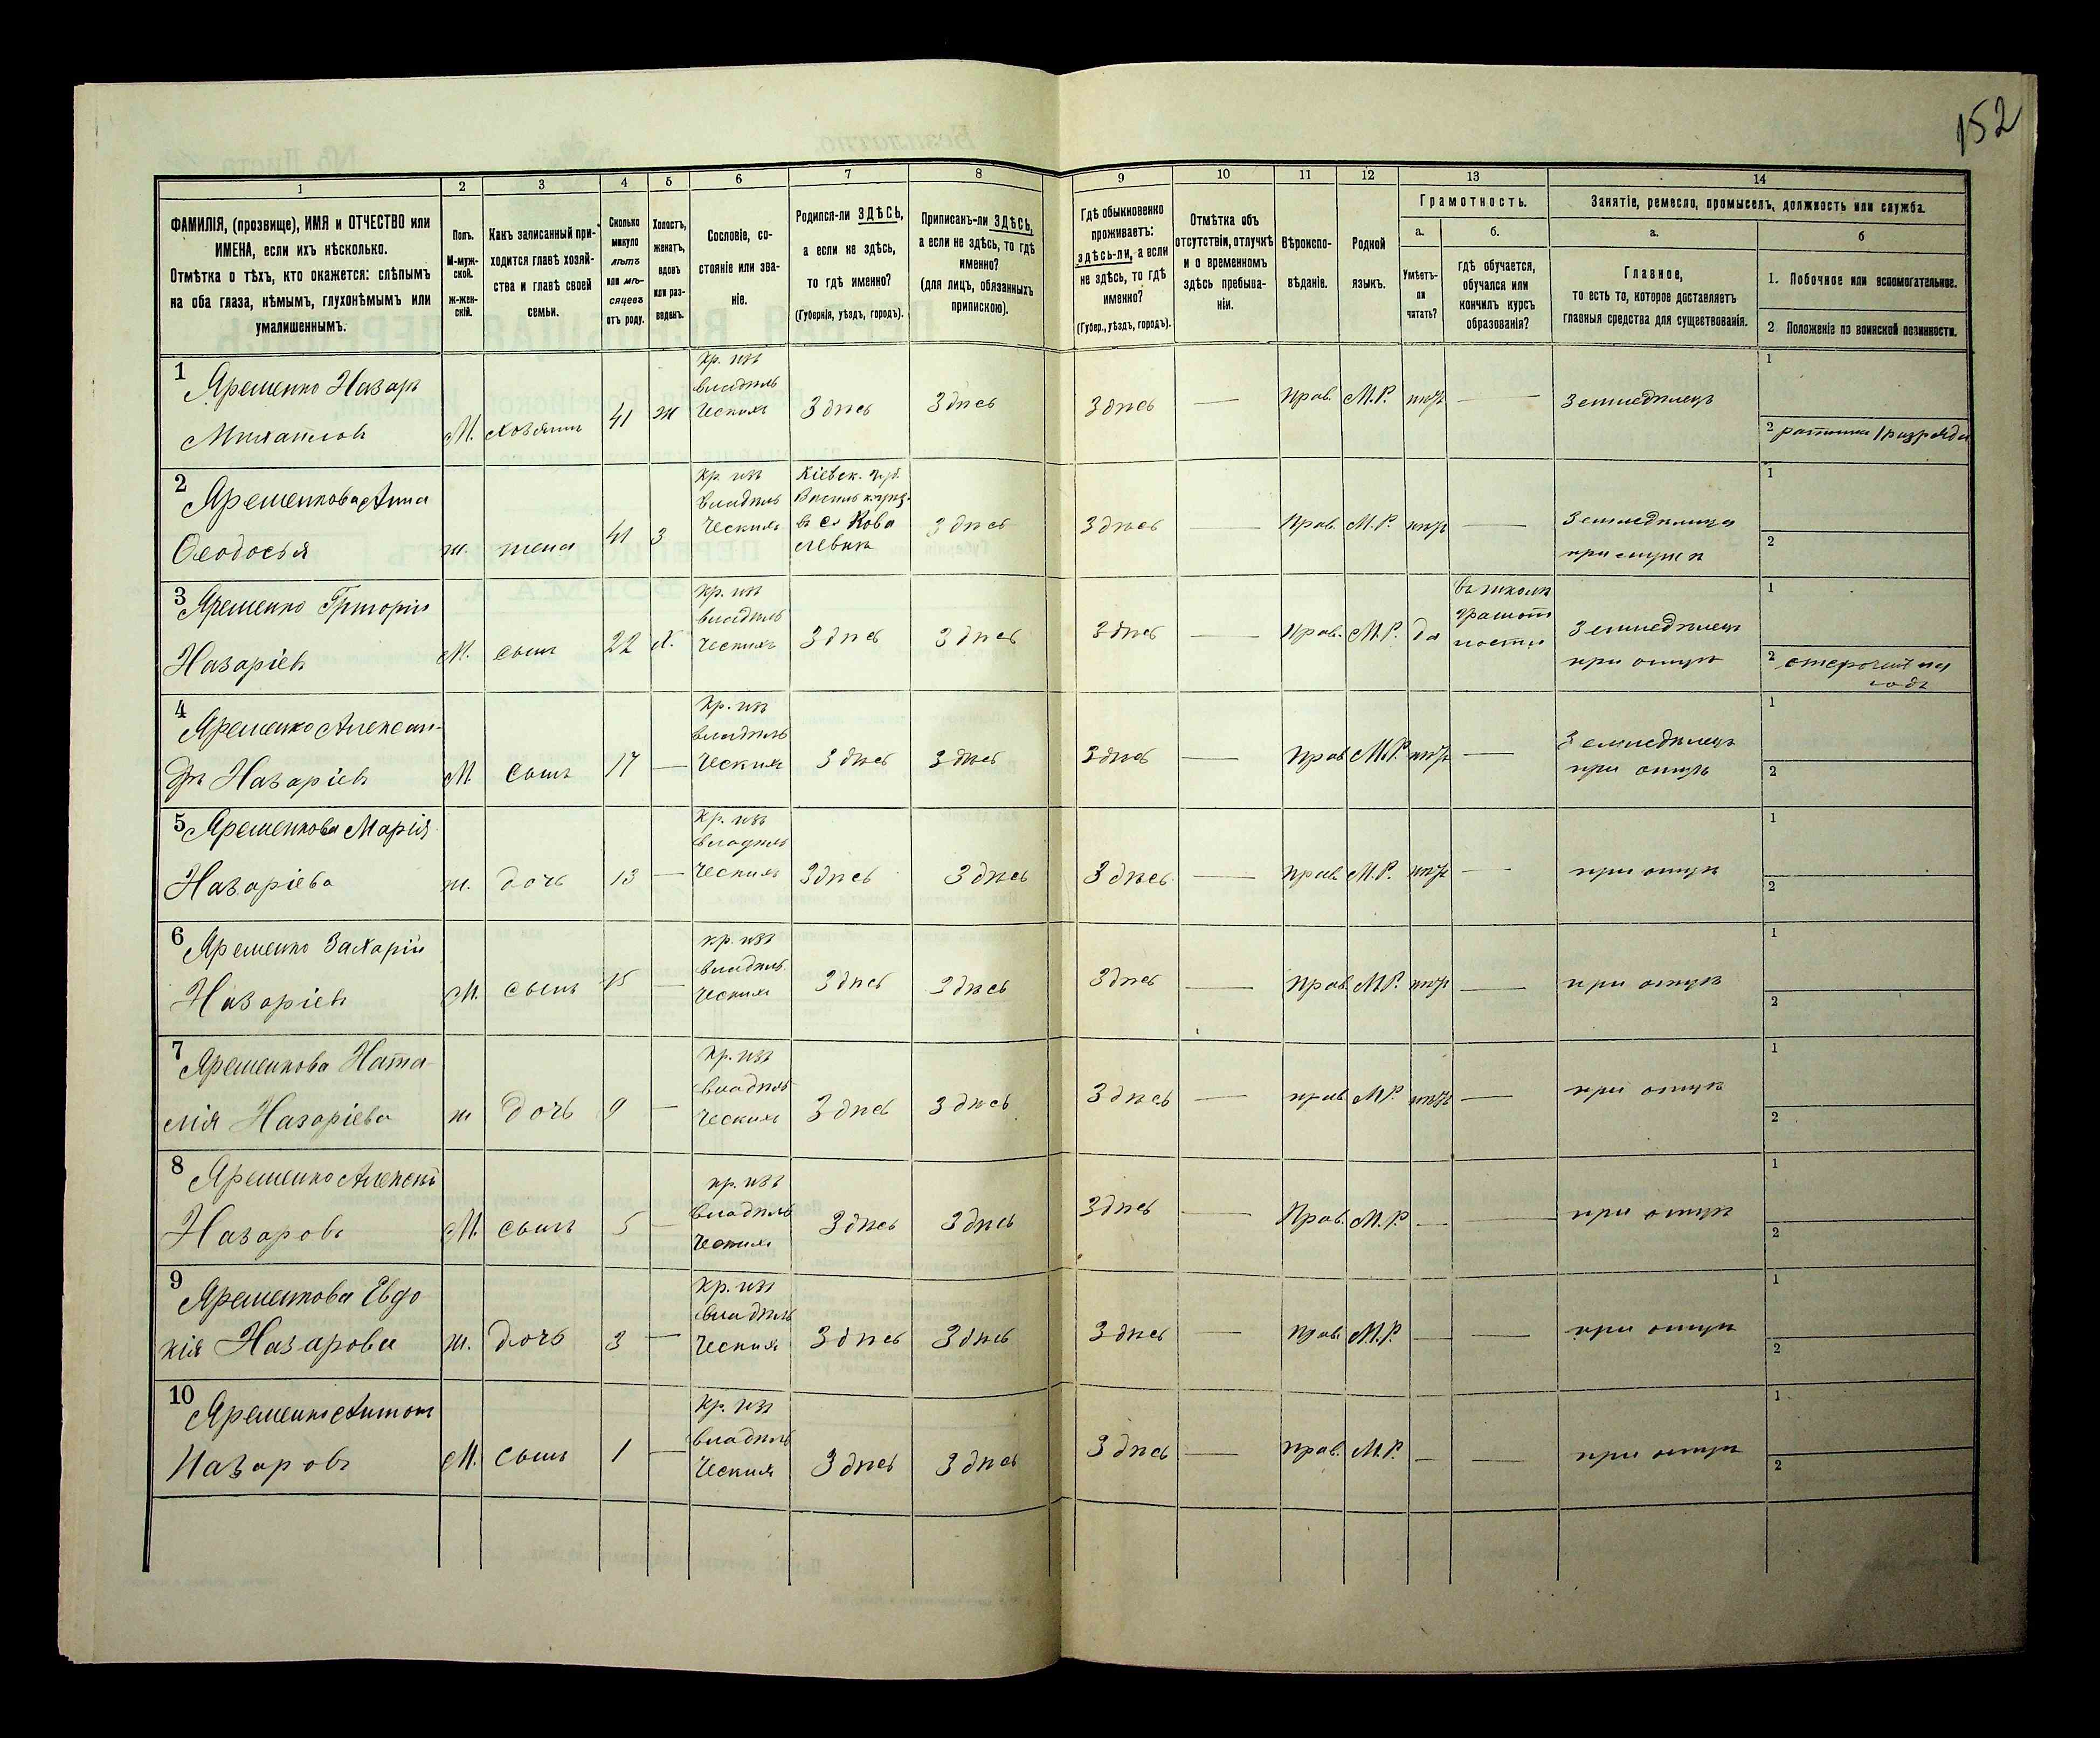 152
1
2
3
4
5
6
7
8
9
10
11
12
13
14
ФАМИЛІЯ, (прозвище), ИМЯ и ОТЧЕСТВО или
ИМЕНА, если ихъ нѣсколько.
Отмѣтка о тѣхъ, кто окажется: слѣпымъ
на оба глаза, нѣмымъ, глухонѣмымъ или
умалишеннымъ.
Полъ.
М-муж-
ской.
ж-жен-
скій.
Какъ записанный при-
ходится главѣ хозяй-
ства и главѣ своей
семьи.
Сколько
минуло
лѣтъ
или мѣ-
сяцевъ
отъ роду.
Холостъ,
женатъ,
вдовъ
или раз-
веденъ.
Сословіе, со-
стояніе или зва-
ніе.
Родился-ли ЗДѢСЬ,
а если не здѣсь,
то гдѣ именно?
(Губернія, уѣздъ, городъ).
Приписанъ-ли ЗДѢСЬ,
а если не здѣсь, то гдѣ
именно?
(для лицъ, обязанныхъ
припискою).
Гдѣ обыкновенно
проживаетъ:
здѣсь-ли, а если
не здѣсь, то гдѣ
именно?
(Губер., уѣздъ, городъ).
Отмѣтка объ
отсутствіи, отлучкѣ
и о временномъ
здѣсь пребыва-
ніи.
Вѣроиспо-
вѣданіе.
Родной
языкъ.
Грамотность.
а.
Умѣетъ-
ли
читать?
б.
гдѣ обучается,
обучался или
кончилъ курсъ
образованія?
Занятіе, ремесло, промыселъ, должность или служба.
а.
Главное,
то есть то, которое доставляетъ
главныя средства для существованія.
б
1. Побочное или вспомогательное.
2 Положеніе по воинской повинности.
1 Яременко Назаръ
Михаиловъ
М. хозяинъ 41 ж
кр. изъ
владѣль
ческихъ
Здѣсь Здѣсь Здѣсь — Прав. М.Р. нѣтъ — Земледѣлецъ
1
2 ратникъ 1 разряда
2 Яременкова Анна
Ѳеодосья
ж. жена 41 З
кр. изъ
владѣль
ческихъ
Кіевск. губ.
Васильк. уѣз.
въ с. Кова
левкѣ
Здѣсь Здѣсь — Прав. М.Р. нѣтъ —
Земледѣлица
при мужѣ
1
2
3 Яременко Григорій
Назаріевъ
М. сынъ 22 х.
кр. изъ
владѣль
ческихъ
Здѣсь Здѣсь Здѣсь — Прав. М.Р. да
въ школѣ
грамот
ности
Земледѣлецъ
при отцѣ
1
2 отсрочка на
годъ
4 Яременко Алексан-
дръ Назаріевъ
М. сынъ 17 —
кр. изъ
владѣль
ческихъ
Здѣсь Здѣсь Здѣсь — Прав М.Р. нѣтъ —
Земледѣлецъ
при отцѣ
1
2
5 Яременкова Марія
Назаріева
ж. дочь 13 —
кр. изъ
владѣль
ческихъ
Здѣсь Здѣсь Здѣсь — Прав. М.Р. нѣтъ — при отцѣ
1
2
6 Яременко Захарій
Назаріевъ
М. сынъ 15 —
кр. изъ
владѣль
ческихъ
Здѣсь Здѣсь Здѣсь — Прав. М.Р. нѣтъ — при отцѣ
1
2
7 Яременкова Ната-
лія Назаріева
ж дочь 9 —
кр. изъ
владѣль
ческихъ
Здѣсь Здѣсь Здѣсь — прав М.Р. нѣтъ — при отцѣ
1
2
8 Яременко Алексѣй
Назаровъ
М. сынъ 5 —
кр. изъ
владѣль
ческихъ
Здѣсь Здѣсь Здѣсь — Прав. М.Р. — — при отцѣ
1
2
9 Яременкова Евдо
кія Назарова
ж. дочь 3 —
кр. изъ
владѣль
ческихъ
Здѣсь Здѣсь Здѣсь — Прав. М.Р. — — при отцѣ
1
2
10 Яременко Антонъ
Назаровъ
М. сынъ 1 —
кр. изъ
владѣль
ческихъ
Здѣсь Здѣсь Здѣсь — Прав. М.Р. — — при отцѣ
1
2